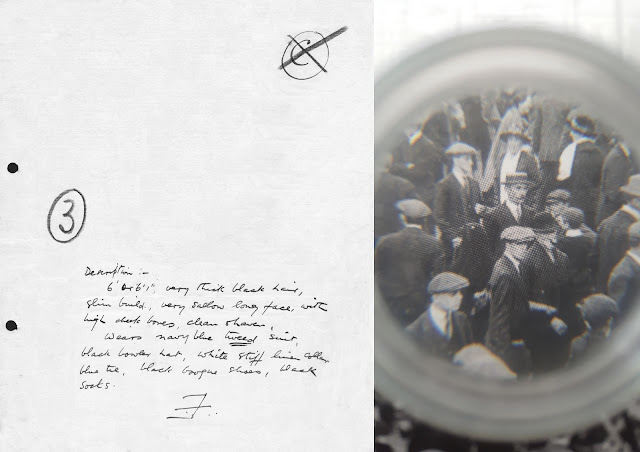 C
3
Description :-
6' or 6'1", very thick black hair,
slim build, very sallow long face, with
high cheek bones, clean shaven,
Wears navy blue tweed suit,
black bowler hat, white stiff linen collar
blue tie, black brogue shoes, black
socks.
F.